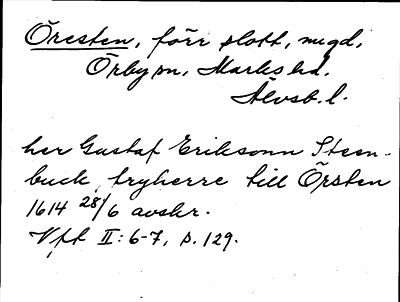 Öresten, förr slott, mgd,
Örby sn, Marks hd.
Älvsb. l.
her Gustaf Eriksonn Steen-
buck, fryherre till Örsten
1614 28/6 avskr.
Vft II: 6-7, s. 129.